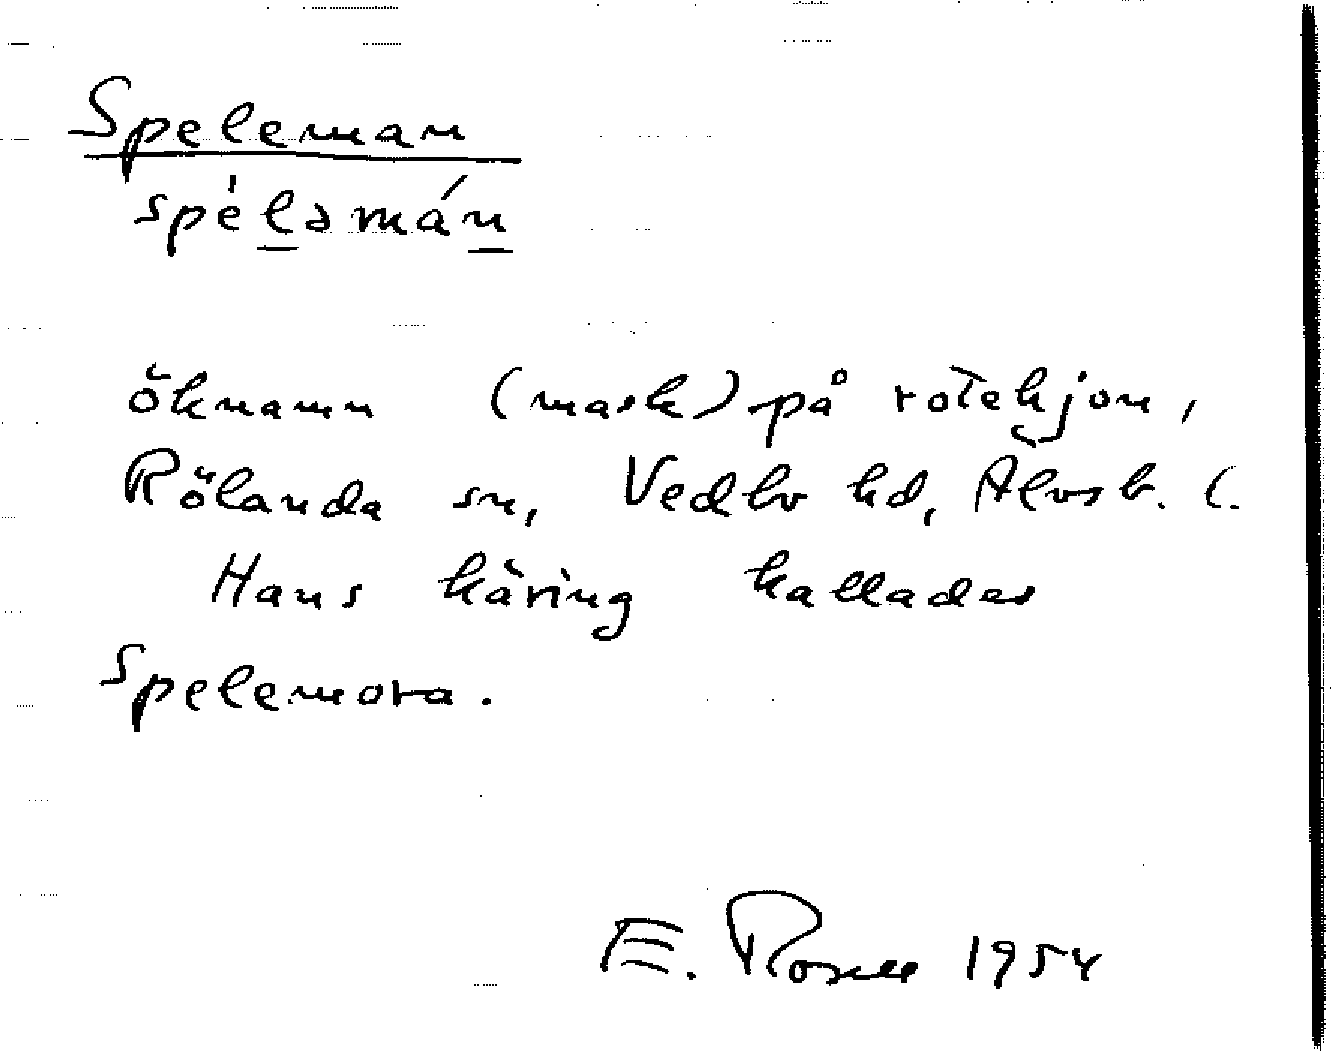 Speleman
spéləmán
öknamn (mask) på rotehjon,
Rölanda sn, Vedbo hd, Älvsb. l.
Hans käring kallades
Spelemora.
E. Rosell 1954